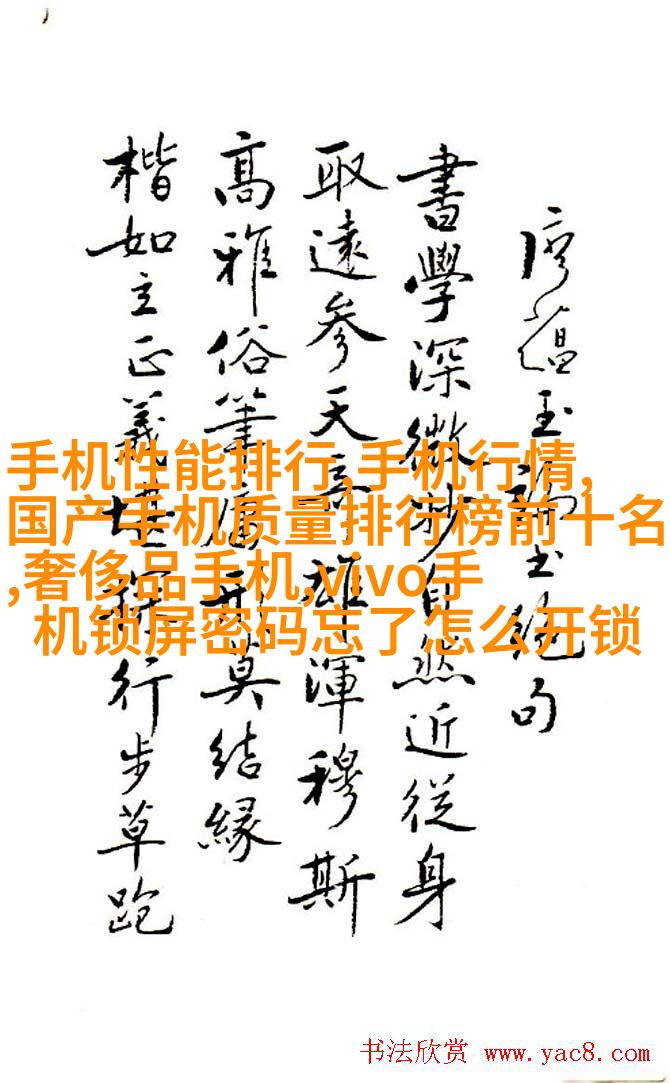 廖藴玉論書絶句
書學深微妙自然近從身
取遠参天意雄渾穆斯
高雅俗筆莫結緣
楷如立正義堪探行步草跑
手机性能排行,手机行情,
国产手机质量排行榜前十名
,奢侈品手机,vivo手
机锁屏密码忘了怎么开锁
书法欣赏 www.yac8.com